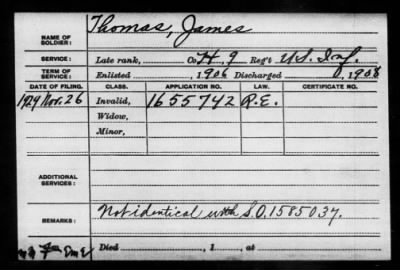 Thomas, James
NAME OF SOLDIER:
SERVICE: Late rank, Co. H. 9 Reg't U.S. Inf.
TERM OF SERVICE: Enlisted , 1906 Discharged , 1908
DATE OF FILING. CLASS. APPLICATION NO. LAW. CERTIFICATE NO.
1929 Nov. 26 Invalid, 1655742 R.E.
Widow,
Minor,
ADDITIONAL SERVICES:
REMARKS: Not identical with S.O. 1585037.
Died , 1 , at